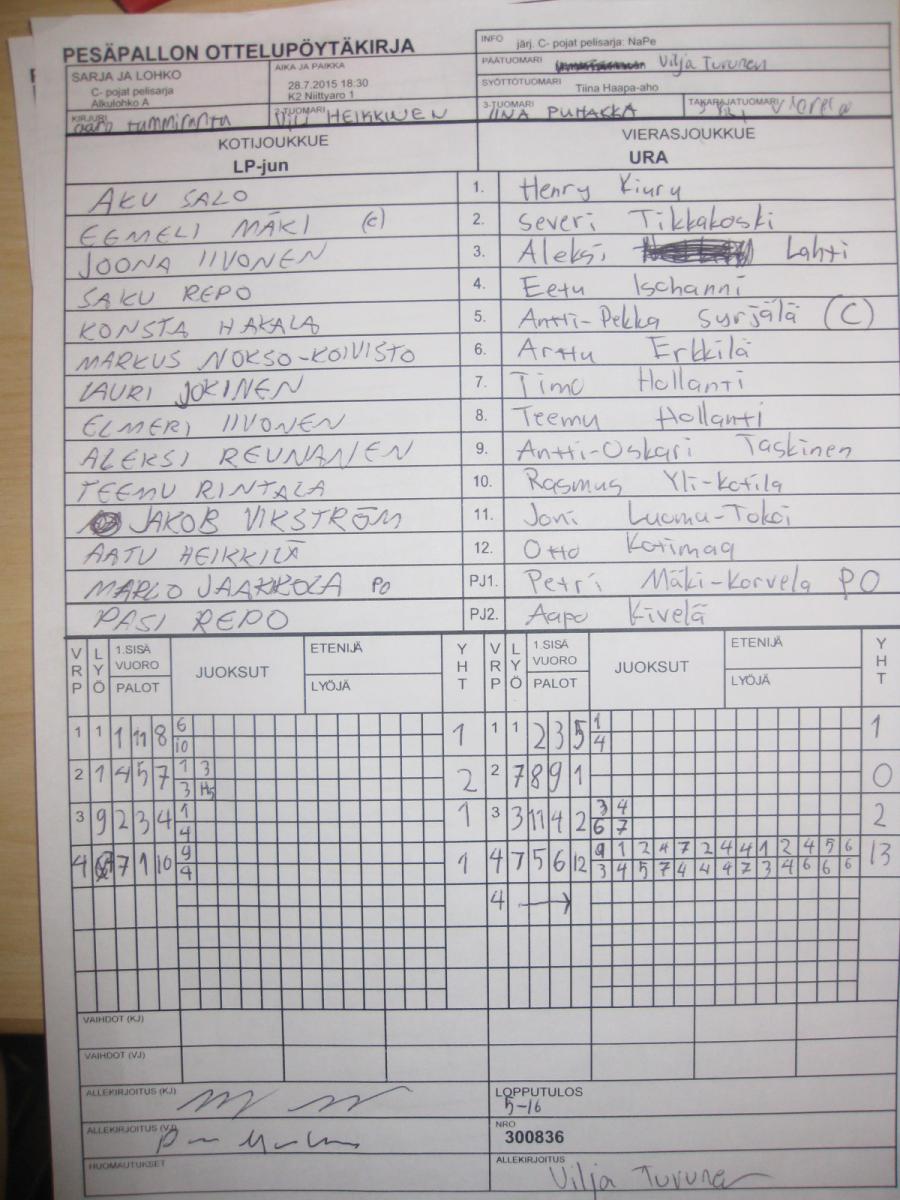 PESÄPALLON OTTELUPÖYTÄKIRJA
INFO järj. C- pojat pelisarja: NaPe
PÄÄTUOMARI Vilja Turunen
SARJA JA LOHKO
C- pojat pelisarja
Alkulohko A
AIKA JA PAIKKA
28.7.2015 18:30
K2 Niittyaro 1
SYÖTTÖTUOMARI Tiina Haapa-aho
KIRJURI
2-TUOMARI HEIKKINEN
3-TUOMARI IINA PUHAKKA
TAKARAJATUOMARI
KOTIJOUKKUE
LP-jun
VIERASJOUKKUE
URA
AKU SALO 1. Henry Kiuru
EEMELI MÄKI (c) 2. Severi Tikkakoski
JOONA IIVONEN 3. Aleksi Lahti
SAKU REPO 4. Eetu Ischanni
KONSTA HAKALA 5. Antti-Pekka Syrjälä (C)
MARKUS NOKSO-KOIVISTO 6. Arttu Erkkilä
LAURI JOKINEN 7. Timo Hollanti
ELMERI IIVONEN 8. Teemu Hollanti
ALEKSI REUNANEN 9. Antti-Oskari Taskinen
TEEMU RINTALA 10. Rasmus Yli-Kotila
JAKOB VIKSTRÖM 11. Joni Luoma-Tokoi
AATU HEIKKILÄ 12. Otto Kotimaa
MARKO JAAKKOLA PO PJ1. Petri Mäki-Korvela PO
PASI REPO PJ2. Aapo Kivelä
VRP LYÖ 1.SISÄ VUORO PALOT JUOKSUT ETENIJÄ LYÖJÄ YHT VRP LYÖ 1.SISÄ VUORO PALOT JUOKSUT ETENIJÄ LYÖJÄ YHT
1 1 1 11 8 6 1 1 1 2 3 5 1 1
10 4
2 1 4 5 7 1 3 2 2 7 8 9 1 0
3 H5
3 9 2 3 4 1 1 3 3 11 4 2 3 4 2
4 6 7
4 7 1 10 9 1 4 7 5 6 12 9 1 2 4 7 2 4 4 1 2 4 5 6 13
4 3 4 5 7 4 4 4 7 3 4 6 6 6
4 →
VAIHDOT (KJ)
VAIHDOT (VJ)
ALLEKIRJOITUS (KJ)
LOPPUTULOS
5-16
ALLEKIRJOITUS (VJ)
NRO
300836
HUOMAUTUKSET
ALLEKIRJOITUS
Vilja Turunen